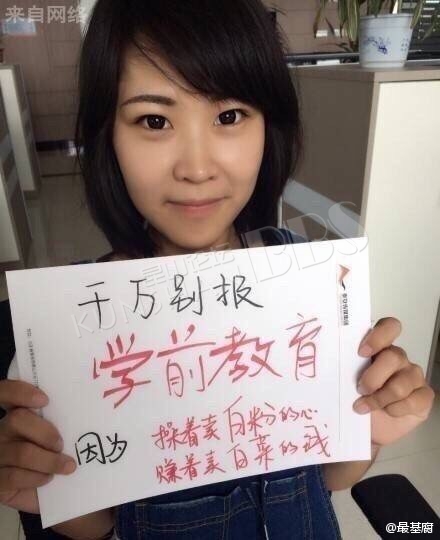 来自网络
千万别报
学前教育
因为
操着卖白粉的心
赚着卖白菜的钱
BBS
@最基腐